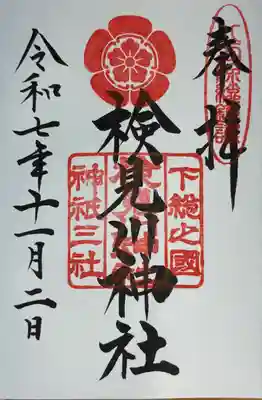 奉拝
検見川神社
下総之國
神祇三社
令和七年十一月二日